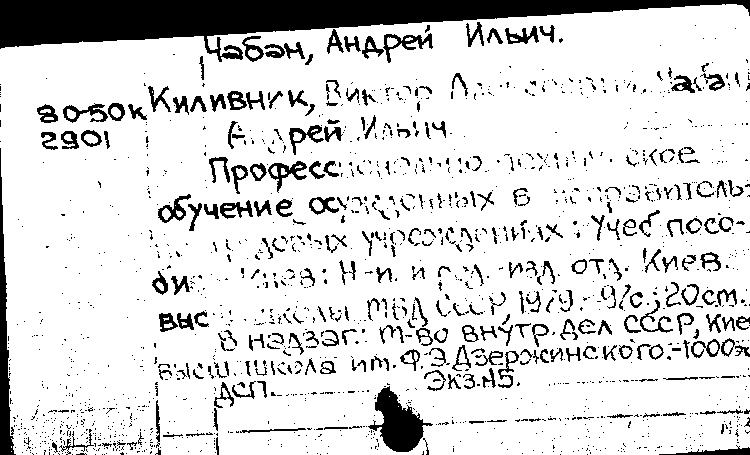 Чабан, Андрей Ильич.
80-50к Киливник, Виктор Чабан,
2901 Андрей Ильич
Профессионально-техническое
обучение осужденных в исправитель-
но-трудовых учреждениях: Учеб. посо-
бие. - Киев: Н-и. и ред.-изд. отд. Киев.
высш. школы МВД СССР, 1979. - 97с.; 20см.
В надзаг.: М-во внутр. дел СССР, Киев.
высш. школа им. Ф.Э.Дзержинского. - 1000экз.
ДСП. Экз. №15.